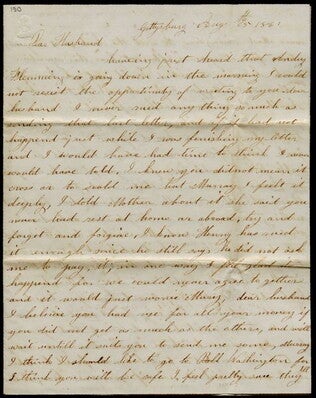 130
Gettysburg Aug 5th 1861
Dear Husband
having just heard that Andy
is going down in the morning I could
not resist the oppertunity of writing to you dear
husband I never rued any thing so much as
sending that last letter, and if it had not
happend just while I was finishing my letter
and I would have had time to think I never
would have told, I know you did not mean it
cross or to scold me but Harvey I felt it
deeply, I told Mother about it she said you
never have rest at home or abroad, try and
forget and forgive, I know Harvey has used it
enough since he still says he did not ask
me to pay, it, in one way I am glad it
happend for we could never agree to gether
and it would just worse dear husband
I believe you had me for all your money if
you did not get as much as the others, and will
wait untill it suits you to send me some,
I think I should like to go to Washington for
I think you will be safe I feel pretty sure they